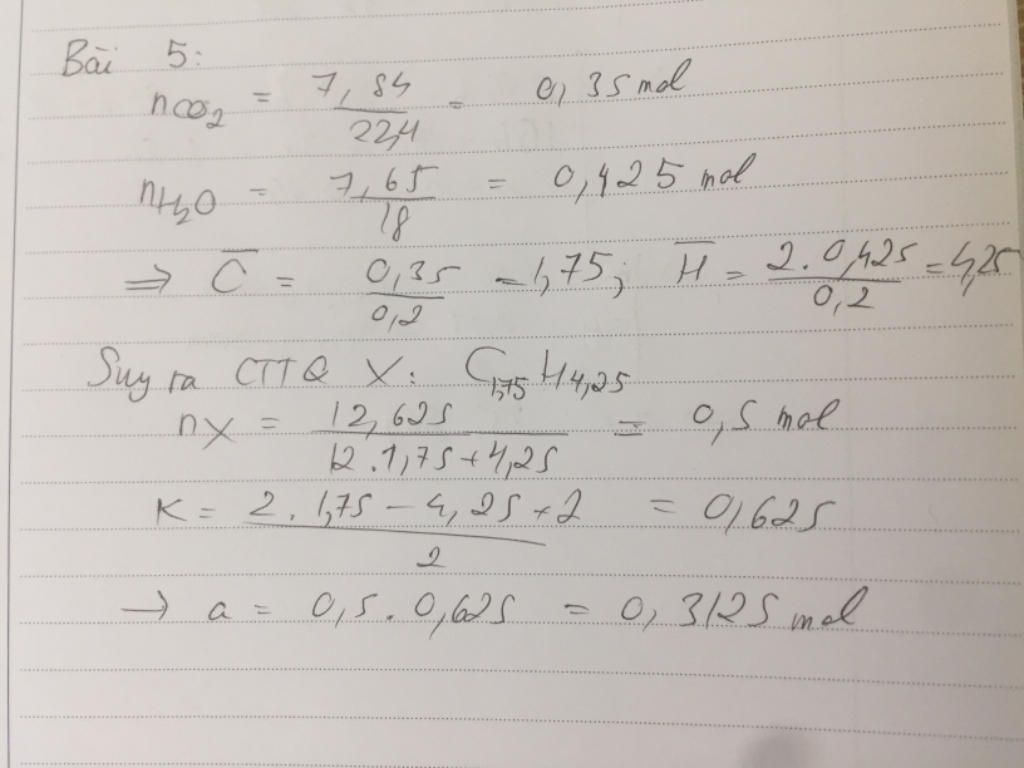 Bài 5:
nCO2 = 7,84/22,4 = 0,35 mol
nH2O = 7,65/18 = 0,425 mol
⇒ C̅ = 0,35/0,2 = 1,75; H̅ = 2.0,425/0,2 = 4,25
Suy ra CTTQ X: C1,75H4,25
nX = 12,625/12.1,75+4,25 = 0,5 mol
K = 2.1,75-4,25+2/2 = 0,625
→ a = 0,5.0,625 = 0,3125 mol